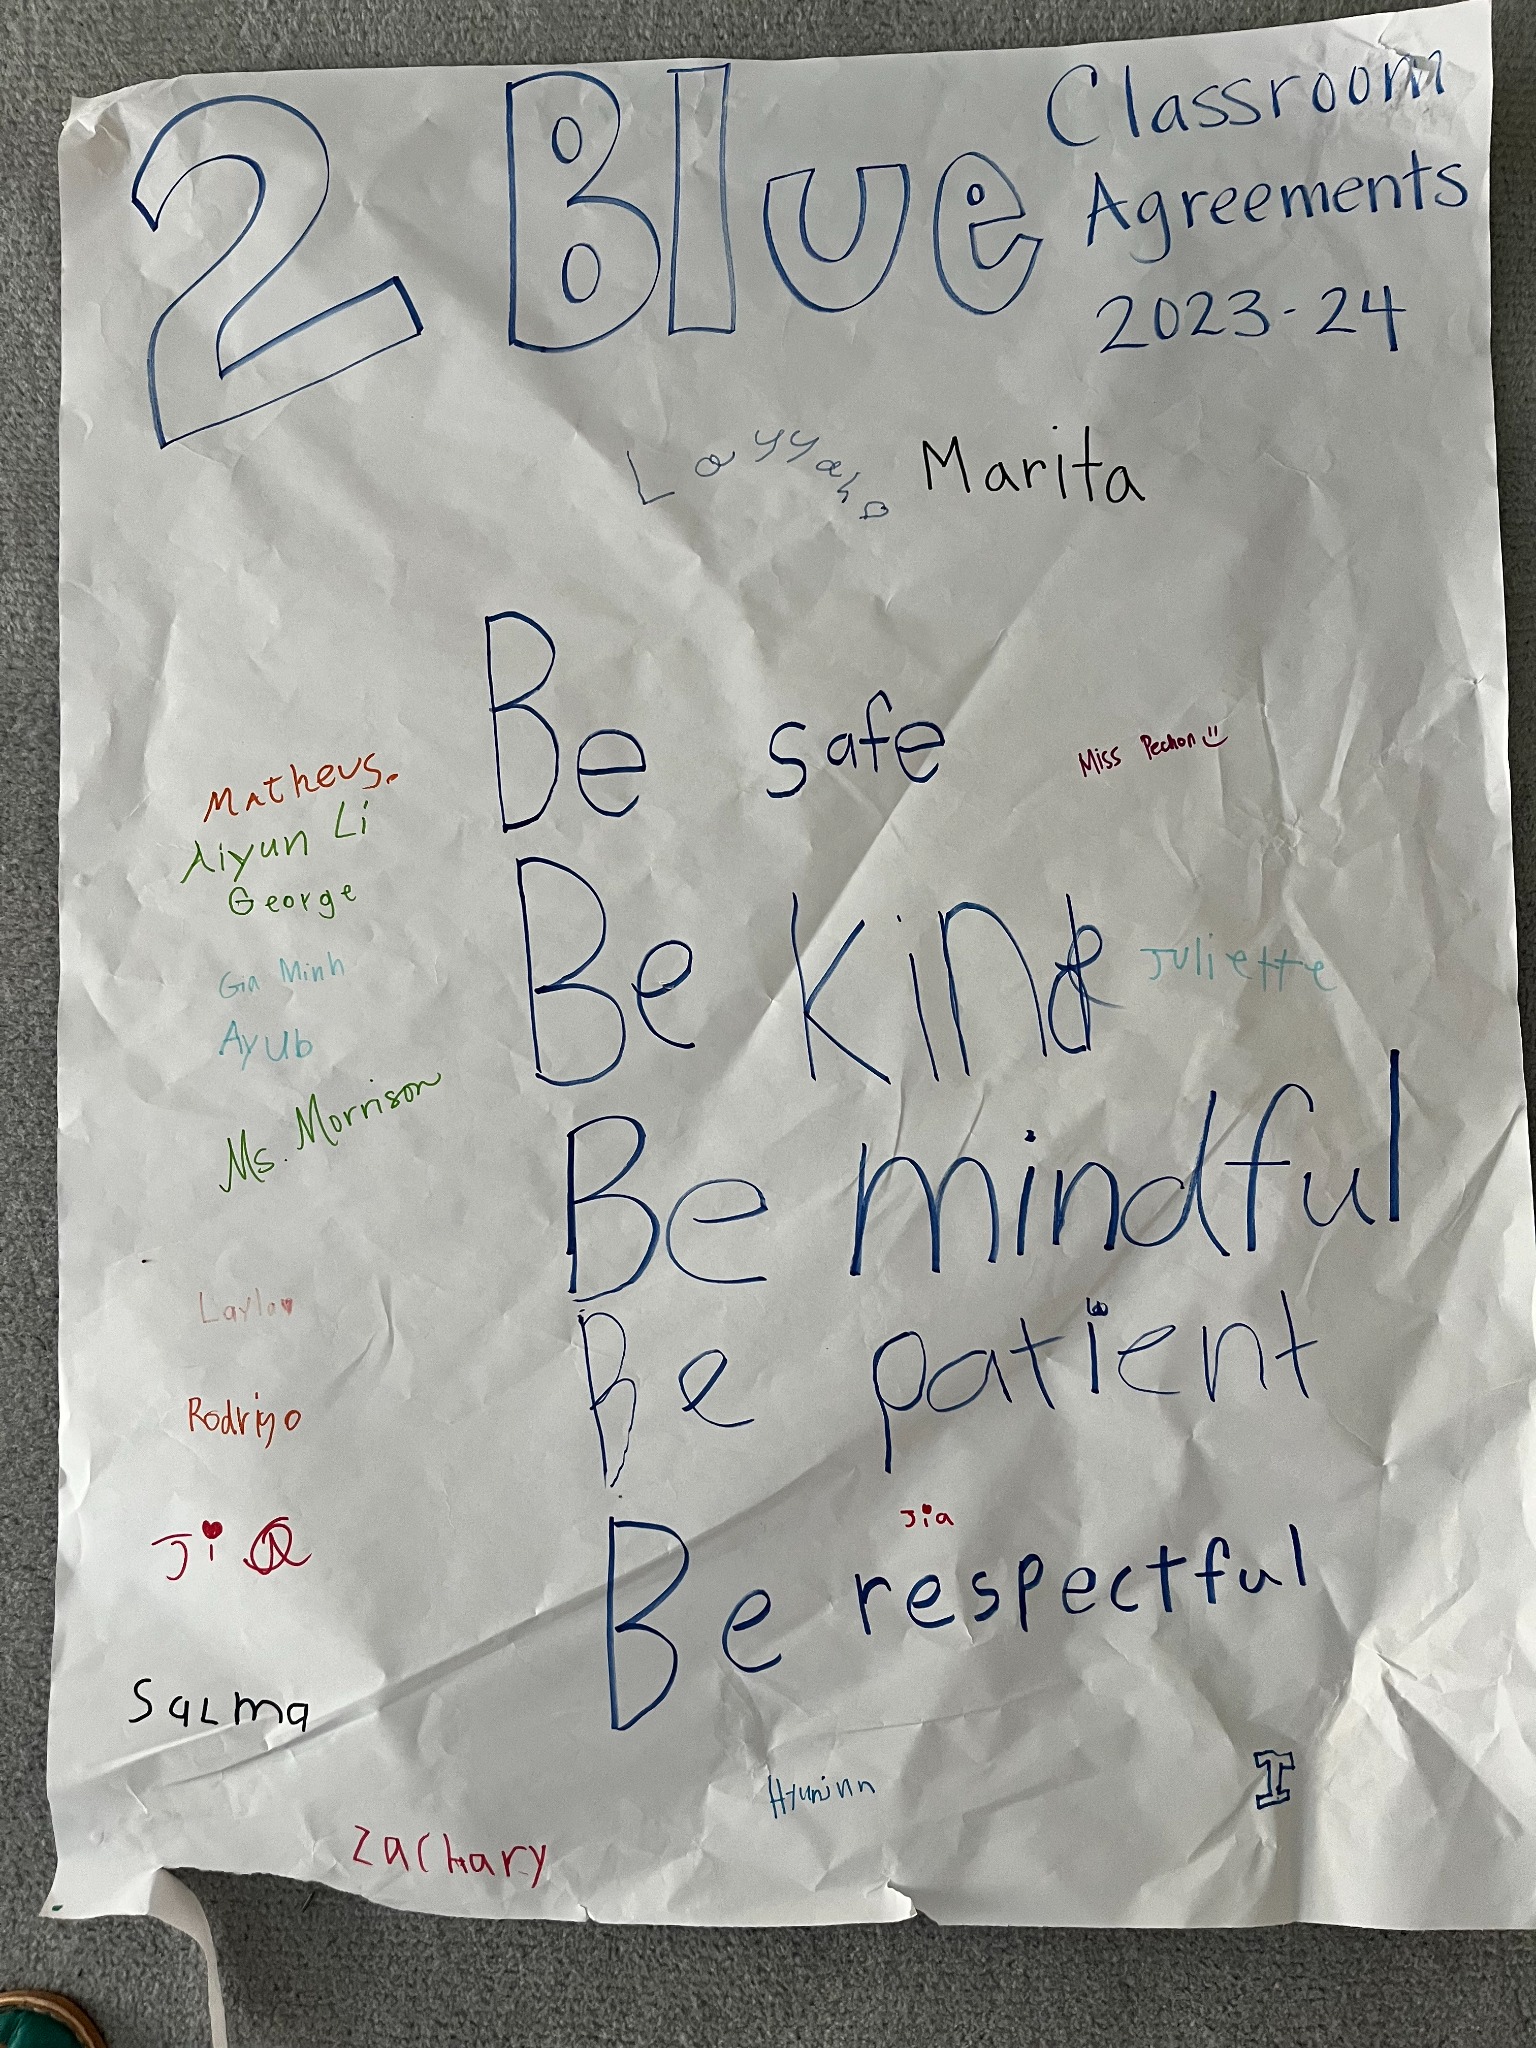 2 Blue Classroom
Agreements
2023-24
Layyah
Marita
Be safe
Miss Pechon
Matheus.
Aiyun Li
George
Be kind
Juliette
Gia Minh
Ayub
Ms. Morrison
Be mindful
Layla
Be patient
Rodrigo
Jia
Jia
Be respectful
Salma
Zachary
I